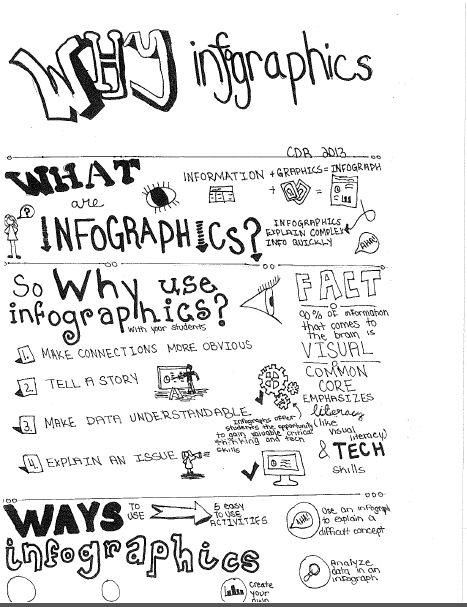 WHY infographics
CDR 2013
WHAT
are
INFOGRAPHICS?
?
INFORMATION + GRAPHICS = INFOGRAPH
+ =
INFOGRAPHICS
EXPLAIN COMPLEX
INFO QUICKLY
AHA!
So Why use
infographics?
With your students
1. MAKE CONNECTIONS MORE OBVIOUS
2. TELL A STORY
3. MAKE DATA UNDERSTANDABLE
4. EXPLAIN AN ISSUE
Infographs offer
students the opportunity
to gain valuable critical
thinking and tech
skills
FACT
90% of information
that comes to
the brain is
VISUAL
COMMON
CORE
EMPHASIZES
literacy
(like
visual
literacy)
& TECH
skills
WAYS
TO
USE
5 easy
TO USE
ACTIVITIES
infographics
AHA!
Use an infograph
to explain a
difficult concept
Analyze
data in an
infograph
Create
your
own